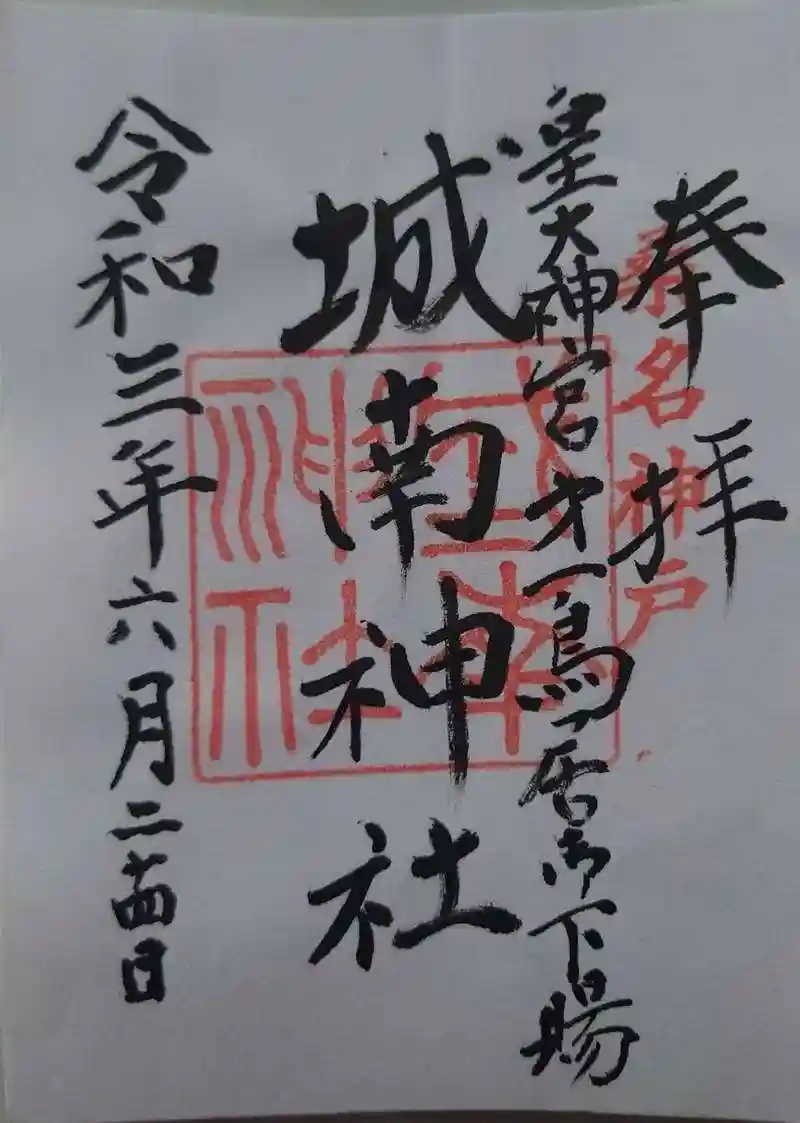 奉拝
桑名神戸
皇大神宮才一鳥居御下賜
城南神社
城南神社
令和三年六月二十四日